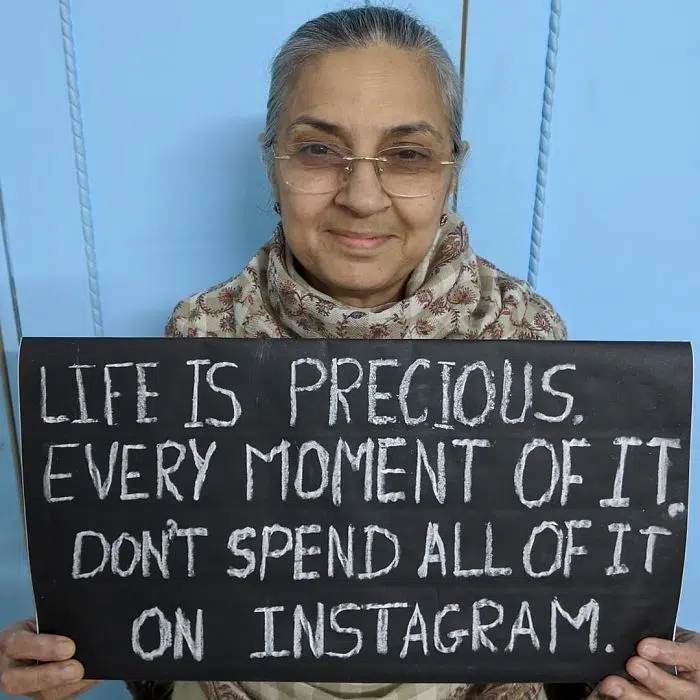 LIFE IS PRECIOUS.
EVERY MOMENT OF IT.
DON'T SPEND ALL OF IT
ON INSTAGRAM.